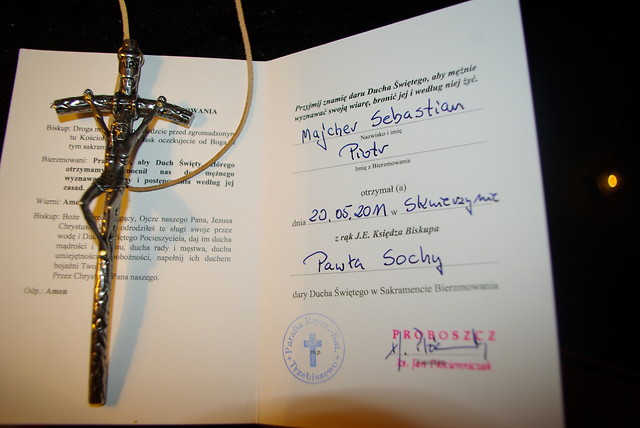 WANIA
Biskup: Droga m dzcie przed zgromadzonym
tu Kościoł ask oczekujecie od Boga
tym sakram
Bierzmowani: Pra aby Duch Święty, którego
otrzymamy mocnił nas do mężnego
wyznawa y i postępowania według jej
zasad.
Wierni: Ame
Biskup: Boże cy, Ojcze naszego Pana, Jezusa
Chrystu odrodziłeś te sługi swoje przez
wodę i Du tego Pocieszyciela, daj im ducha
mądrości i u, ducha rady i męstwa, ducha
umiejętnoś obożności, napełnij ich duchem
bojaźni Two
Przez Chrys Pana naszego.
Odp.: Amen
Przyjmij znamię daru Ducha Świętego, aby mężnie
wyznawać swoją wiarę, bronić jej i według niej żyć.
Majcher Sebastian
Nazwisko i imię
Piotr
Imię z Bierzmowania
otrzymał (a)
dnia 20.05.2011 w Skwierzynie
z rąk J.E. Księdza Biskupa
Pawła Sochy
dary Ducha Świętego w Sakramencie Bierzmowania
Parafia Rzym.-Kat.
Trzebiszewo
PROBOSZCZ